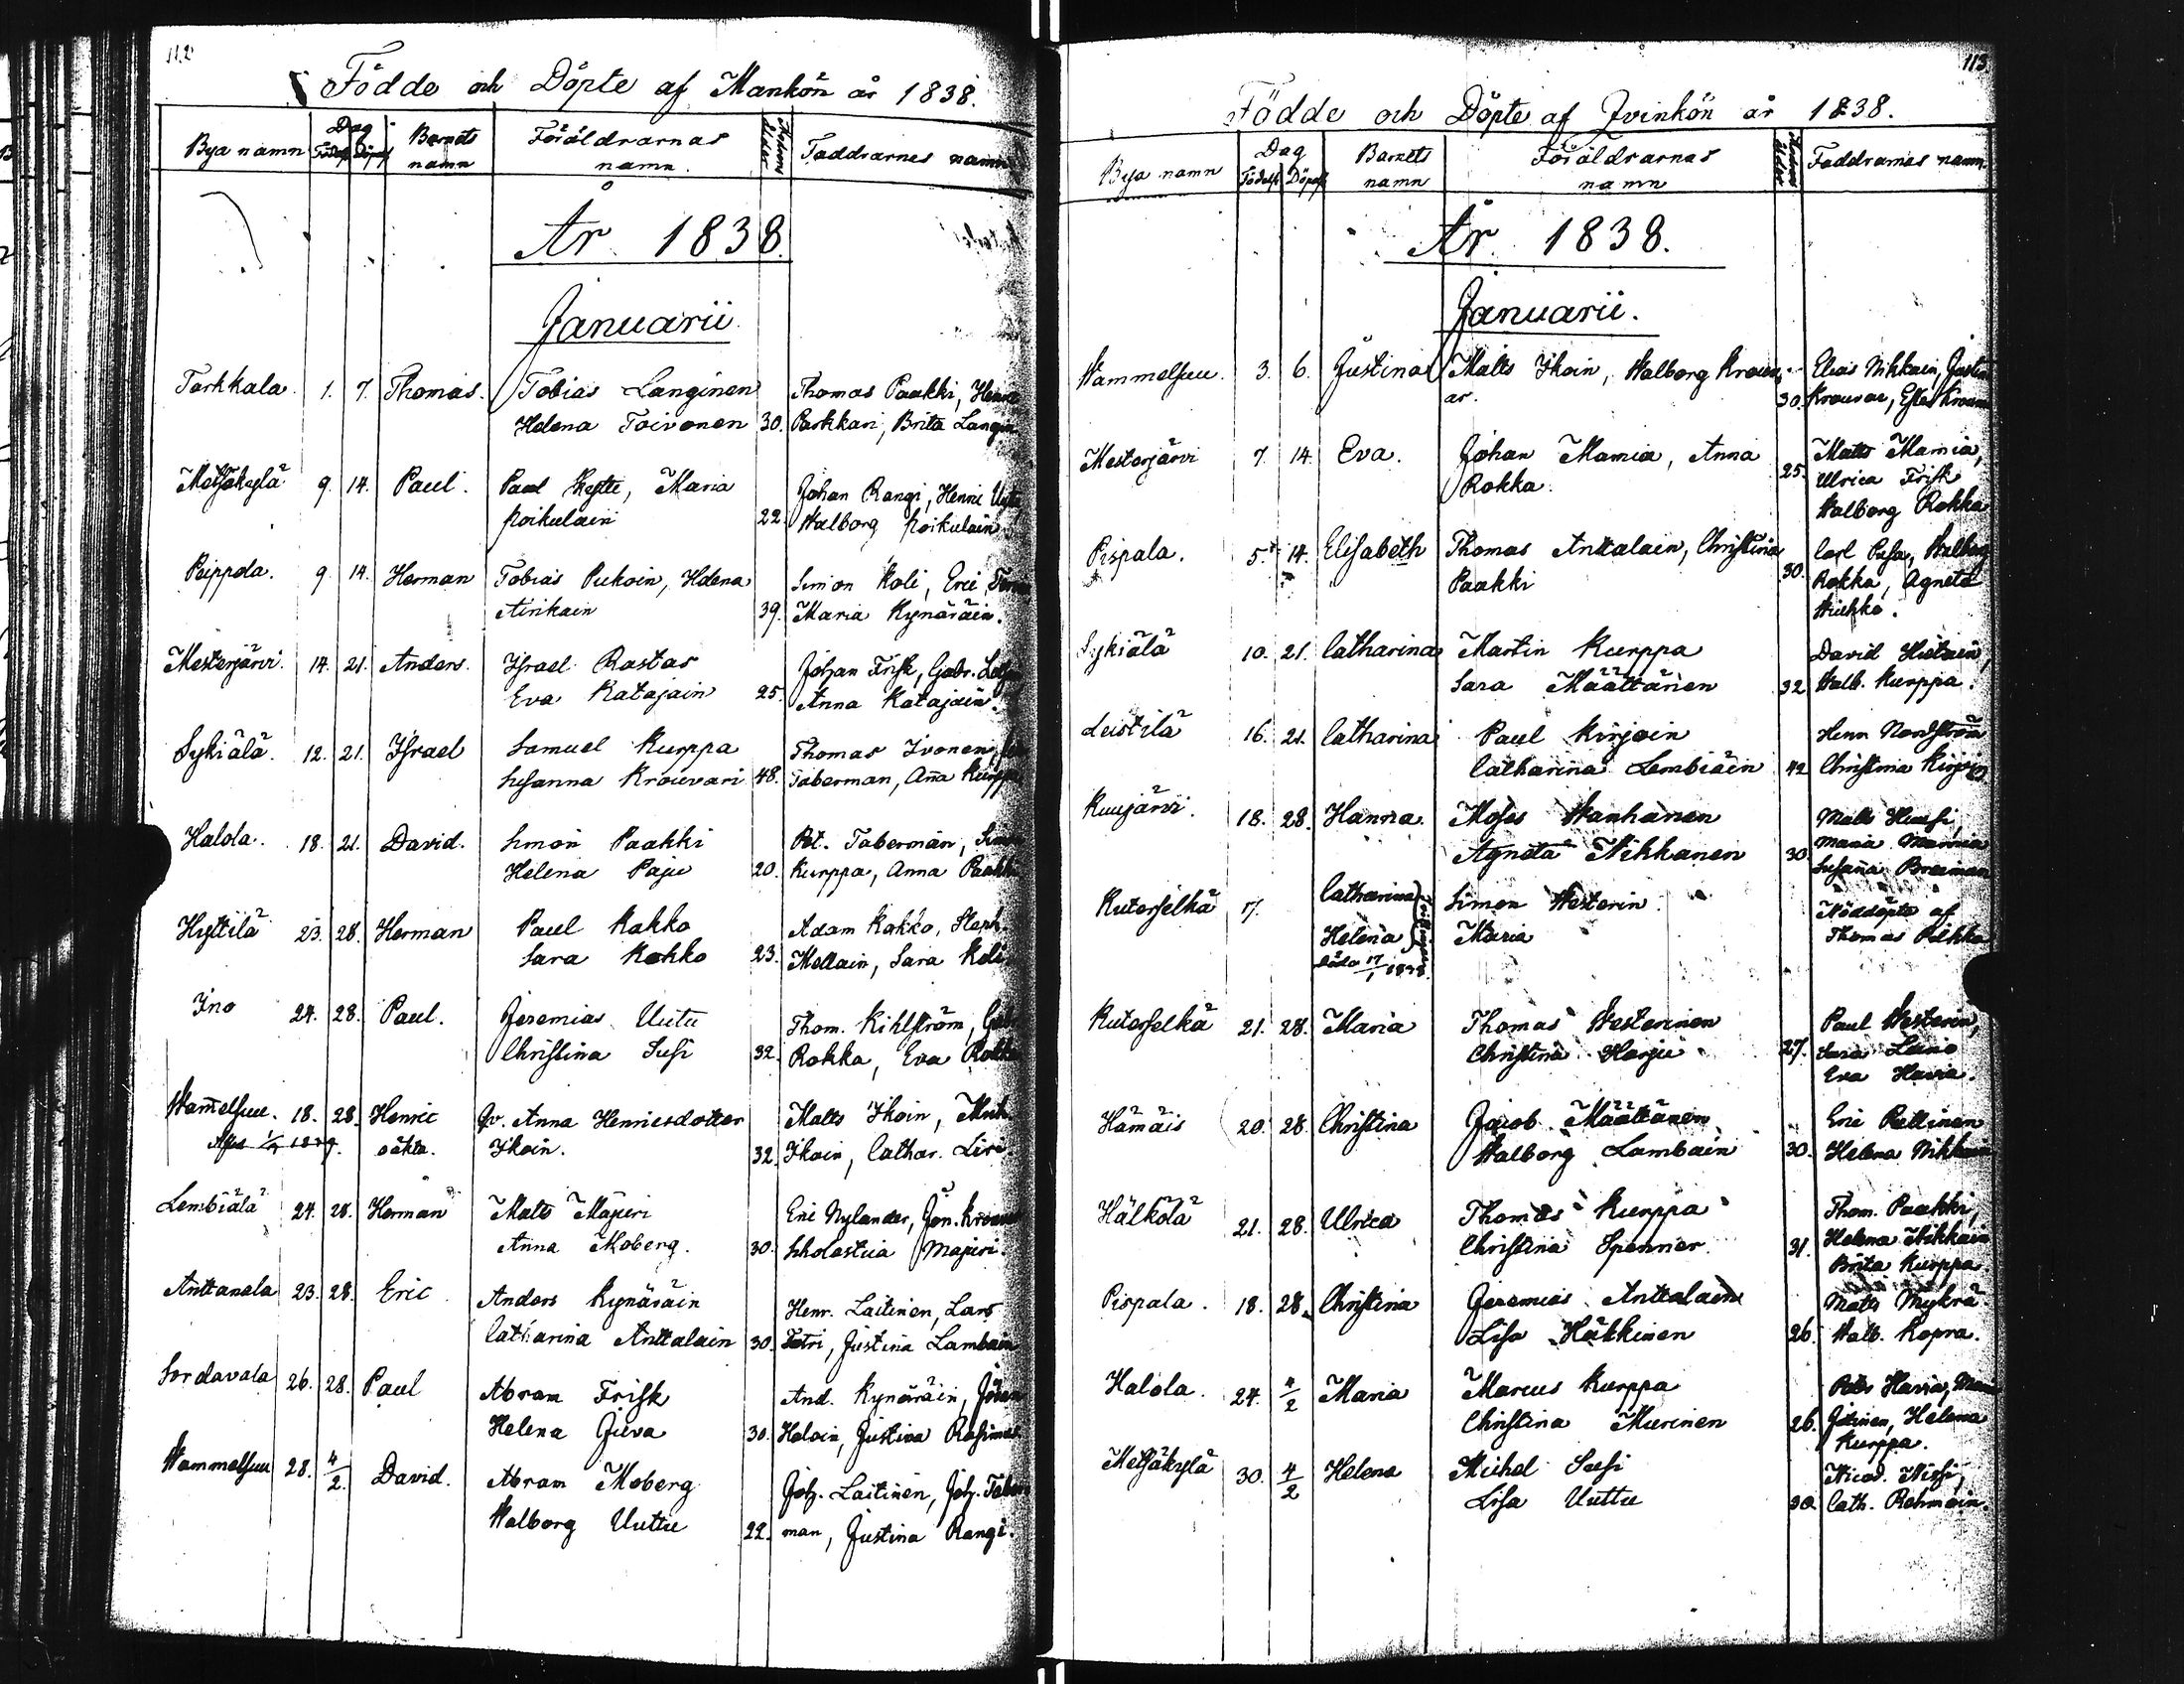 112
Födde och Döpte af Mankön år 1838.
Bya namn Dag Födels Döpels Barnets namn Föräldrarnas namn. Ålder Faddrarnes namn
År 1838.
Januarii.
Torkkala. 1. 7. Thomas. Tobias Langinen Thomas Paakki, Henric
Helena Toivonen 30. Parkkari, Brita Langin
Metsäkylä 9. 14. Paul. Paul Kytte, Maria Johan Rangi, Henric
Poikulain 22. Walborg Poikulain.
Peippola. 9. 14. Herman Tobias Pukoin, Helena Simon Koli, Eric
Airikain 39. Maria Kynäräin.
Mesterjärvi. 14. 21. Anders. Israel Rastas Johan Frisk, Gabr.
Eva Katajain 25. Anna Katajain.
Sykiälä. 12. 21. Israel Samuel Kurppa Thomas Ivonen,
Susanna Krouvari 48. Taberman, Anna Kurppa
Halola. 18. 21. David. Simon Paakki Pet. Taberman, Simon
Helena Paju 20. Kurppa, Anna Paakki
Hyttilä 23. 28. Herman Paul Kakko Adam Kakko, Steph.
Sara Kokko 23. Mellain, Sara Koli
Ino 24. 28. Paul. Jeremias Uutu Thom. Kihlström, Gabr
Christina Susi 32. Rokka, Eva Rokka
Wammelsuu. 18. 28. Henric Qv. Anna Henricsdotter Matts Ikoin, Mich.
oäkta. Ikoin. 32. Ikoin, Cathar. Liri
Lembiälä 24. 28. Herman Matts Majuri Eric Nylander, Jon. Krouv
Anna Moberg. 30. Scholastica Majuri.
Anttanala 23. 28. Eric Anders Kynäräin Henr. Laitinen, Lars
Catharina Anttalain 30. Tatri, Justina Lambain
Sordavala 26. 28. Paul Abram Frisk And. Kynäräin,
Helena Juva 30. Haloin, Justina
Wammelsuu 28. 4/2. David. Abram Moberg Joh. Laitinen, Joh. Taber
Walborg Uuttu 22. man, Justina Rangi.
113
Födde och Döpte af Qvinkön år 1838.
Bya namn Dag Födels Döpels Barnets namn Föräldrarnas namn Ålder Faddrarnas namn
År 1838.
Januarii.
Wammelsuu. 3. 6. Justina Matts Ikoin, Walborg Krouv Elias Nikkain, Justin
ar. 30. Krouvar, Ester Krouv
Mesterjärvi 7. 14. Eva. Johan Mamia, Anna Matts Mamia,
Rokka. 25. Ulrica Frisk
Walborg Rokka
Pispala. 5. 14. Elisabeth Thomas Anttalain, Christina Carl Pusa, Walborg
Paakki 30. Rokka, Agneta
Sykiälä 10. 21. Catharina Martin Kurppa David Hietain,
Sara Määttänen 32 Walb. Kurppa.
Leistilä 16. 21. Catharina Paul Kirjoin Henr. Nordström
Catharina Lembiäin 42 Christina Kirjoin
Kuujärvi. 18. 28. Hanna. Moses Wanhanen Matts Huusi,
Agneta Nikkanen 30. Maria Mamia
Susanna
Kuterselkä 17. Catharina Simon Westerin Nöddöpte af
Helena Maria Thomas
döda 17/1 1838.
Kuterselkä 21. 28. Maria Thomas Westerinen Paul Westerin,
Christina Harju 27. Sara
Eva Havia.
Hämäis 20. 28. Christina Jacob Määttänen Eric Pullinen
Walborg Lambain 30. Helena Nikkain
Hälkölä 21. 28. Ulrica Thomas Kurppa Thom. Paakki,
Christina Spennar 31. Helena Nikkain
Brita Kurppa.
Pispala. 18. 28. Christina Jeremias Anttalain Matts Mykrä
Lisa Häkkinen 26. Walb. Kopra.
Halola. 24. 4/2 Maria Marcus Kurppa Havia,
Christina Murinen 26. Helena
Kurppa.
Metsäkylä 30. 4/2 Helena Michel Susi Nicod. Nissi,
Lisa Uuttu 30. Cath. Rehmoin.